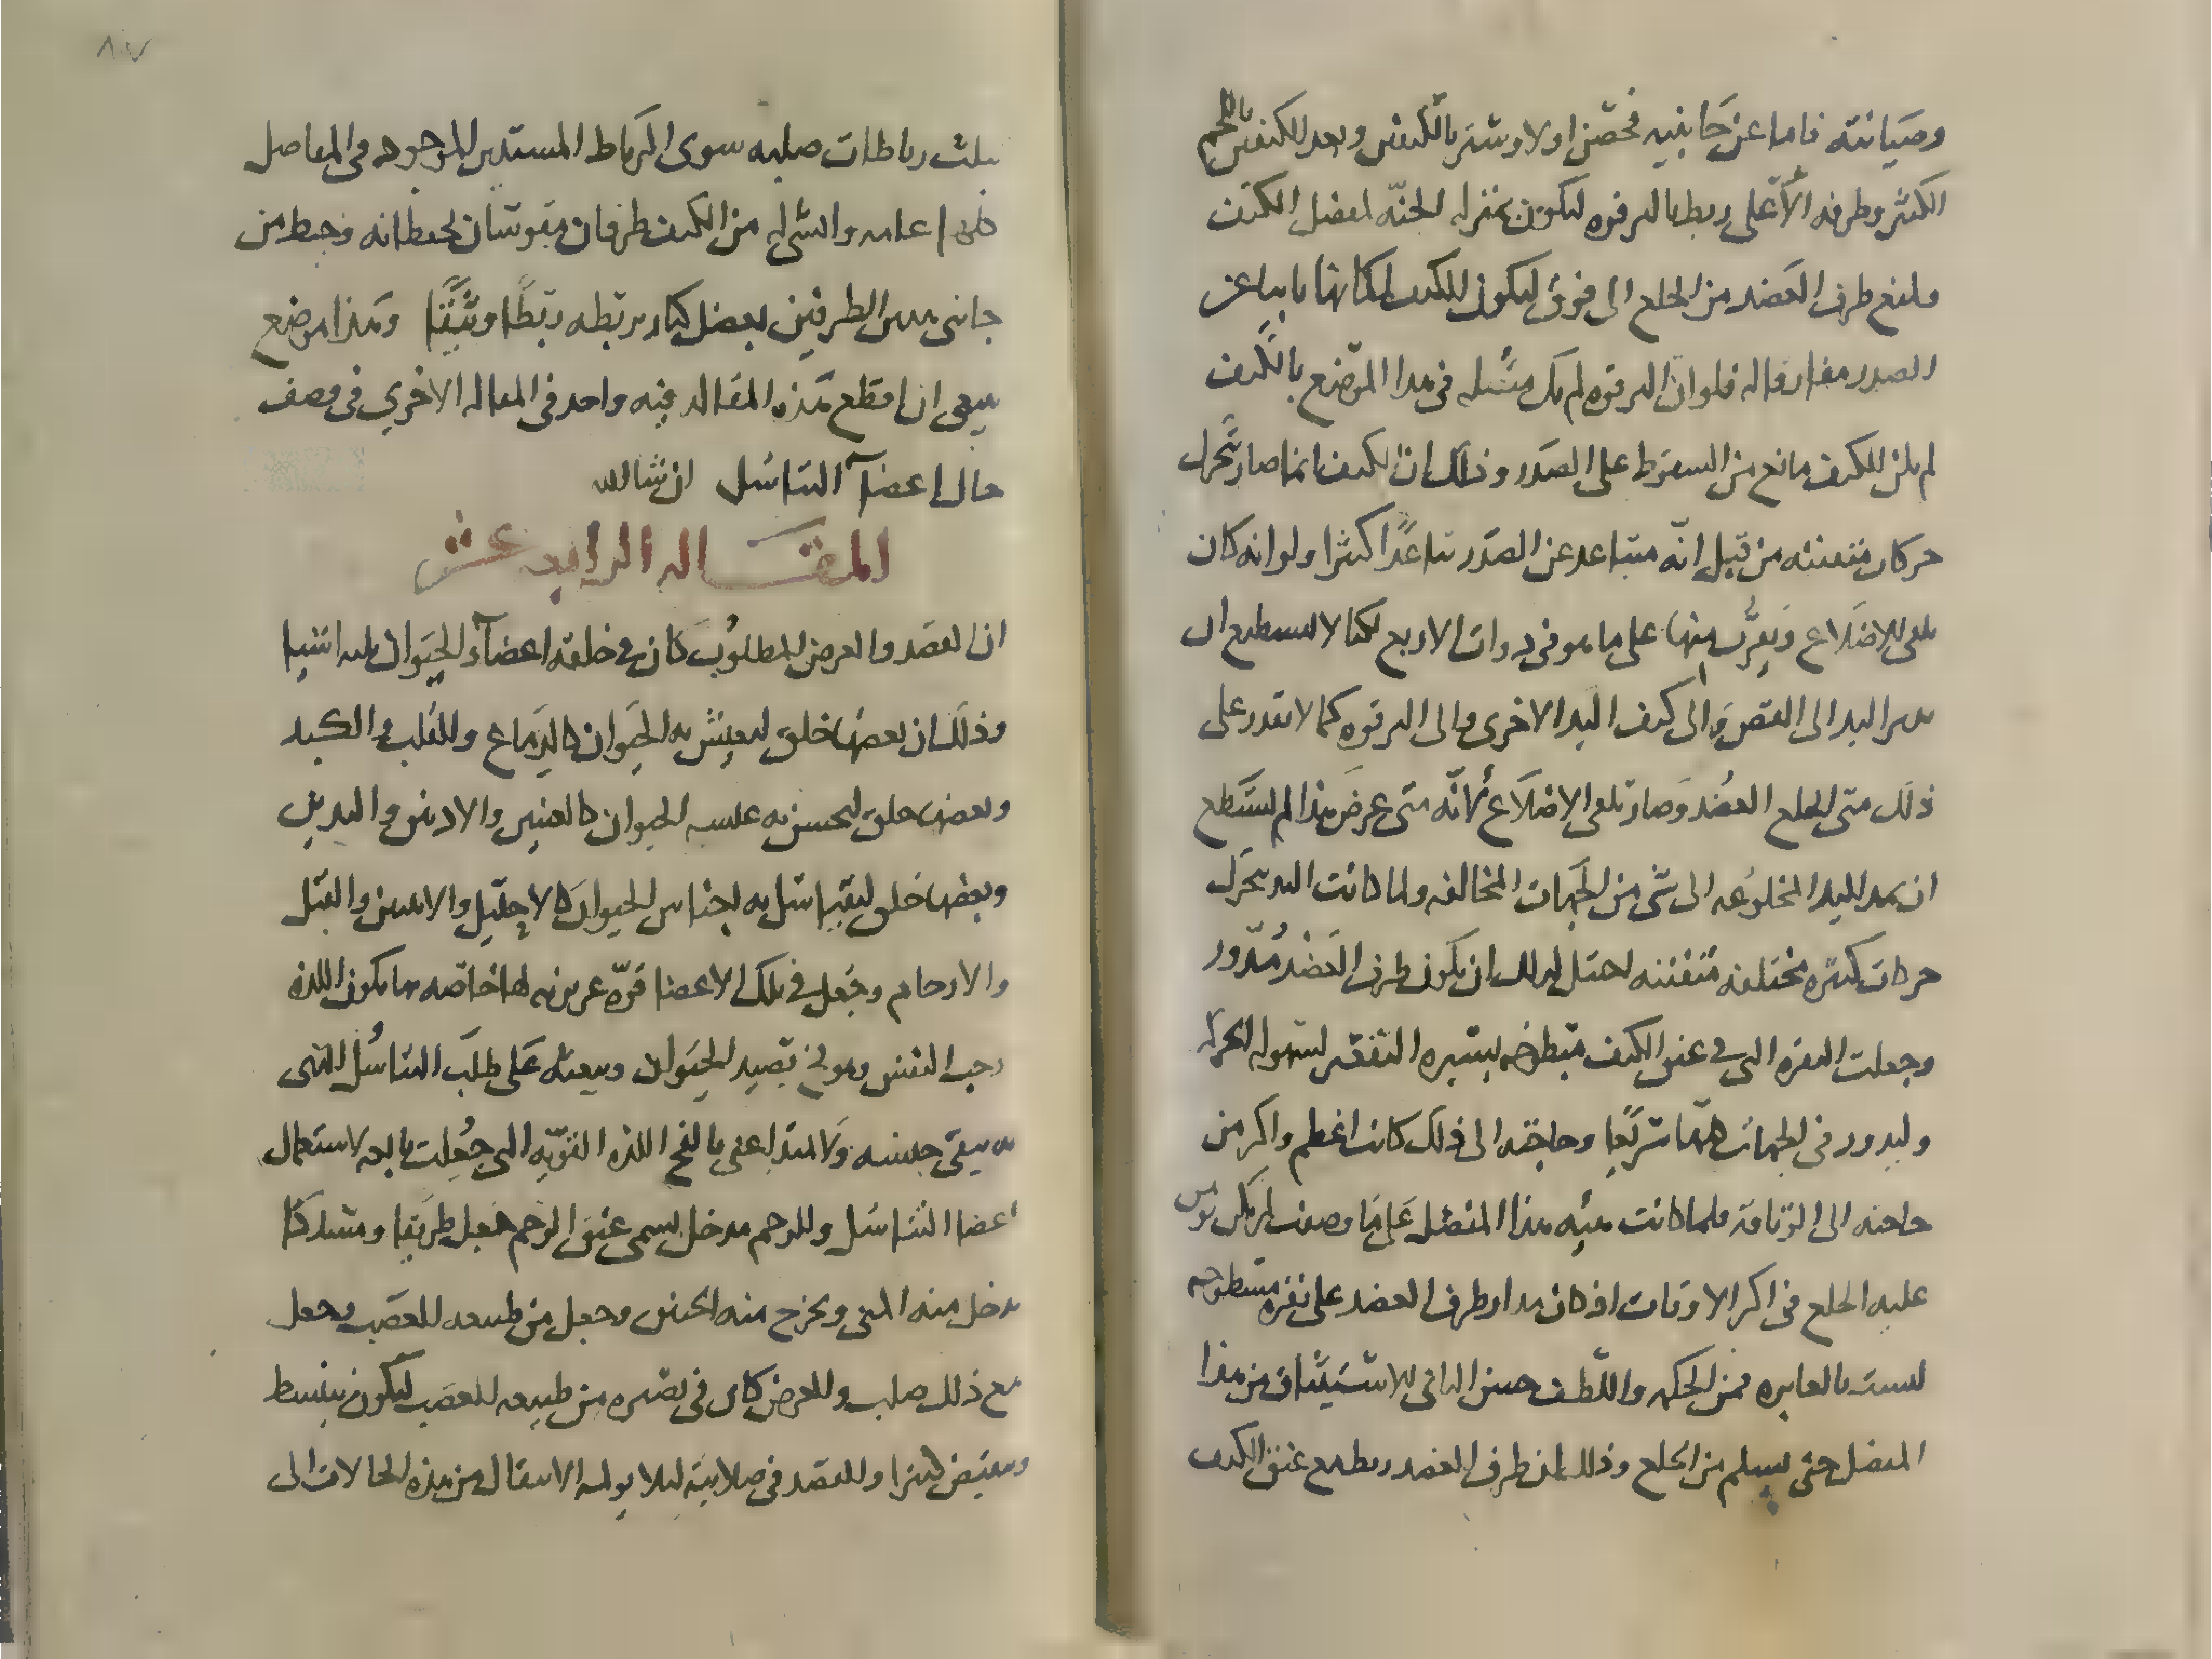 وصيانته فاما عن جانبيه فحصن اولا وستر بالكتفين وبعد الكتفين باللحم
الكثير وطرفه الأعلى ربط بالترقوه ليكون بمنزله الجنّه لمفصل الكتف
ولمنع طرف العضد من الخلع الى فوق ليكون للكتف لمكانها بابتاعز
الصدر مفارقا له فلو ان الترقوه لم يكن متصله في هذا الموضع بالكتف
لم يكن للكتف مانع من السقوط على الصدر وذلك ان الكتف انما صار يتحرك
حركات متفننه من قبل انّه متباعد عن الصدر تباعدًا كثيرا ولو انه كان
يلقى الاضلاع ويقرب منها على ما هو في ذوات الاربع لكنا لا نستطيع ان
نمر اليد الى القص والى كتف اليد الاخرى والى الترقوه كما لا نقدر على
ذلك متى انخلع العضد وصار يلقى الاضلاع لانّه متى عرض هذا لم نستطع
ان نمد اليد المخلوعه الى شى من الجهات المخالفه ولما كانت اليد تتحرك
حركات كثيره مختلفه متفننه احتيل لذلك ان يكون طرف العضد مُدّور
وجعلت النقره التى في عنق الكتف متطوحه يسيره التقعير لسهوله الحركه
وليدور في الجهات كلها سريعا وحاجته الى ذلك كانت اعظم واكثر من
حاجته الى الوثاقه فلما كانت هيئه هذا المفصل على ما وصفت لم يكن يومن
عليه الخلع في اكثر الاوقات اذ كان مدار طرف العضد على نقره متطوحه
ليست بالغايره فمن الحكمه واللّطف حسن التاتى للاستيثاق من هذا
المفصل حتى يسلم من الخلع وذلك ان طرف العضد ربط مع عنق الكتف
٨٠٧
بثلث رباطات صلبه سوى الرباط المستدير الموجود في المفاصل
كلها عامه والتى له من الكتف طرفان مقوسان يحفظانه ويحيط من
جانبى هذين الطرفين بعضل كبار يربطه ربطًا وثيقا وهذا موضع
ينبغي ان اقطع هذه المقاله فيه واخذ في المقاله الاخرى في وصف
حال اعضآ التناسل ان شا الله
المقاله الرابعه عشر
ان القصد والغرض المطلوب كان في خلقه اعضآ الحيوان ثلثه اشيا
وذلك ان بعضها خلق ليعيش به الحيوان كالدماغ والقلب والكبد
وبعضها خلق ليحسن به عيشه الحيوان كالعينين والاذنين واليدين
وبعضها خلق ليتناسل به اجناس الحيوان كالاحليل والانثيين والقبل
والارحام وجُعل في تلك الاعضا قوّه غريزيه لها خاصّه بها يكون اللذه
وحب النفس وهو فخ يصيد الحيوان ويبعثه على طلب التناسُل الذى
به يبقى جنسه ولا يبتد اعنى بالفخ اللذه القويّه التى جُعلت تابعه لاستعمال
اعضا التناسل وللرحم مدخل يسمى عنق الرحم جعل طريقا ومسلكا
يدخل منه المنى ويخرج منه الجنين وجعل من طبيعه العصب وجعل
مع ذلك صلب والغرض كان في تصييره من طبيعه العصب ليكون ينبسط
وينقبض كثيرا والقصد في صلابته ليلا يولمه الانتقال من هذه الحالات الى